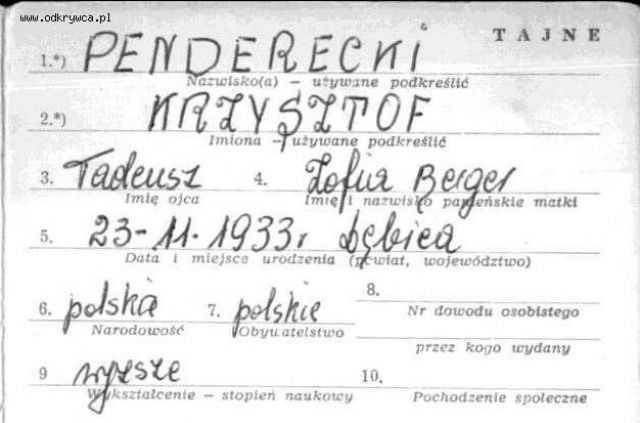 www.odkrywca.pl
TAJNE
1.*) PENDERECKI
Nazwisko(a) – używane podkreślić
2.*) KRZYSZTOF
Imiona – używane podkreślić
3. Tadeusz 4. Zofia Berger
Imię ojca Imię i nazwisko panieńskie matki
5. 23-11-1933r Dębica
Data i miejsce urodzenia (powiat, województwo)
6. polska 7. polskie 8.
Narodowość Obywatelstwo Nr dowodu osobistego
przez kogo wydany
9 wyższe 10.
Wykształcenie – stopień naukowy Pochodzenie społeczne